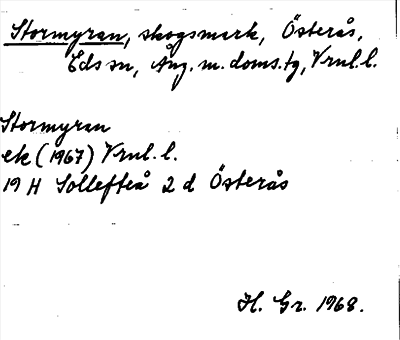 Stormyran, skogsmark, Österås,
Eds sn, Ång. m. doms.tg, Vrnl. l.
Stormyran
ek (1967) Vrnl. l.
19 H Sollefteå 2 d Österås
H. Gr. 1968.